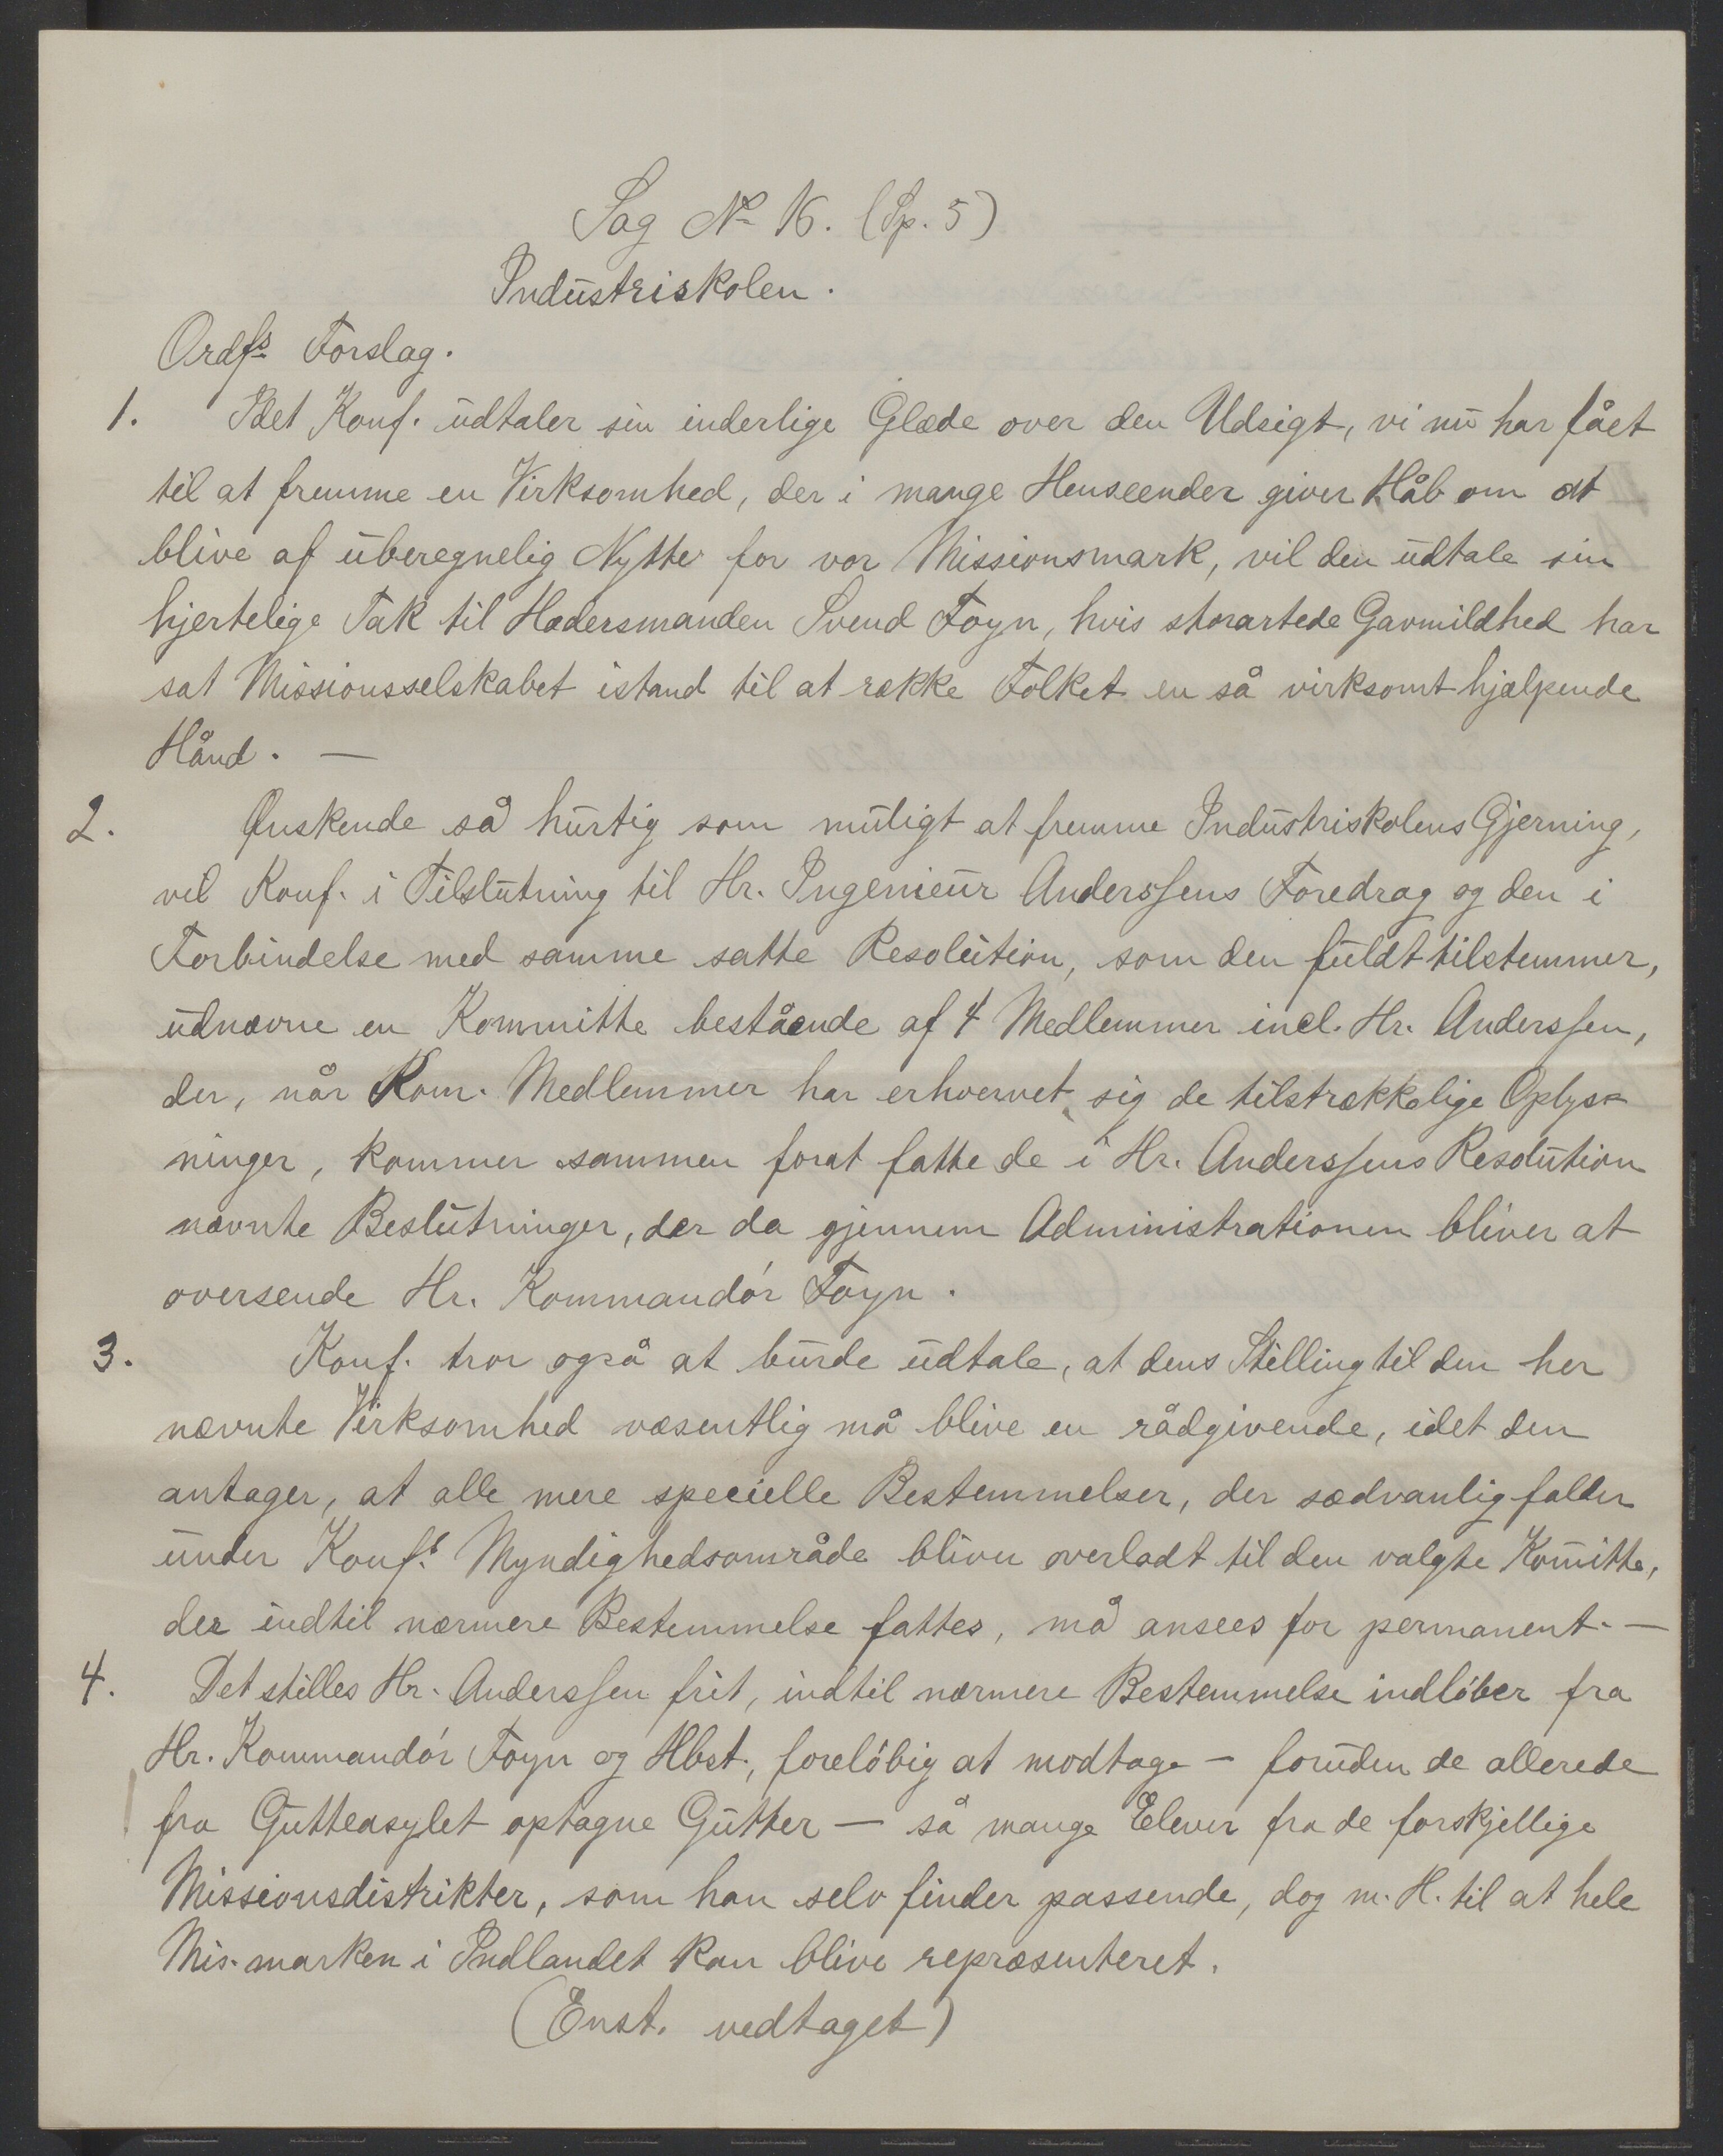 Sag No 16. (Sp. 5)
Industriskolen.
Ordfs Forslag.
1. Idet Konf. udtaler sin inderlige Glæde over den Udsigt, vi nu har fået
til at fremme en Virksomhed, der i mange Henseender giver Håb om at
blive af uberegnelig Nytte for vor Missionsmark, vil den udtale sin
hjertelige Tak til Hædersmanden Svend Foyn, hvis storartede Gavmildhed har
sat Missionsselskabet istand til at række Folket en så virksomt hjælpende
Hånd. —
2. Ønskende så hurtig som muligt at fremme Industriskolens Gjerning,
vil Konf. i Tilslutning til Hr. Ingenieur Anderssens Foredrag og den i
Forbindelse med samme satte Resolution, som den fuldt tilstemmer,
udnævne en Kommitte bestående af 4 Medlemmer incl. Hr. Anderssen,
der, når Kom. Medlemmer har erhvervet sig de tilstrækkelige Oplys=
ninger, kommer sammen forat fatte de i Hr. Anderssens Resolution
nævnte Beslutninger, der da gjennem Administrationen bliver at
oversende Hr. Kommandór Foyn.
3. Konf. tror også at burde udtale, at dens Stilling til den her
nævnte Virksomhed væsentlig må blive en rådgivende, idet den
antager, at alle mere specielle Bestemmelser, der sædvanlig falder
under Konfs. Myndighedsområde bliver overladt til den valgte Kom̄itte,
der indtil nærmere Bestemmelse fattes, må ansees for permanent. —
4. Det stilles Hr. Anderssen frit, indtil nærmere Bestemmelse indlóber fra
Hr. Kommandór Foyn og Hbst., forelóbig at modtage — foruden de allerede
fra Gutteasylet optagne Gutter — så mange Elever fra de forskjellige
Missionsdistrikter, som han selv finder passende, dog m. H. til at hele
Mis. marken i Indlandet kan blive repræsenteret.
(Enst. vedtaget)